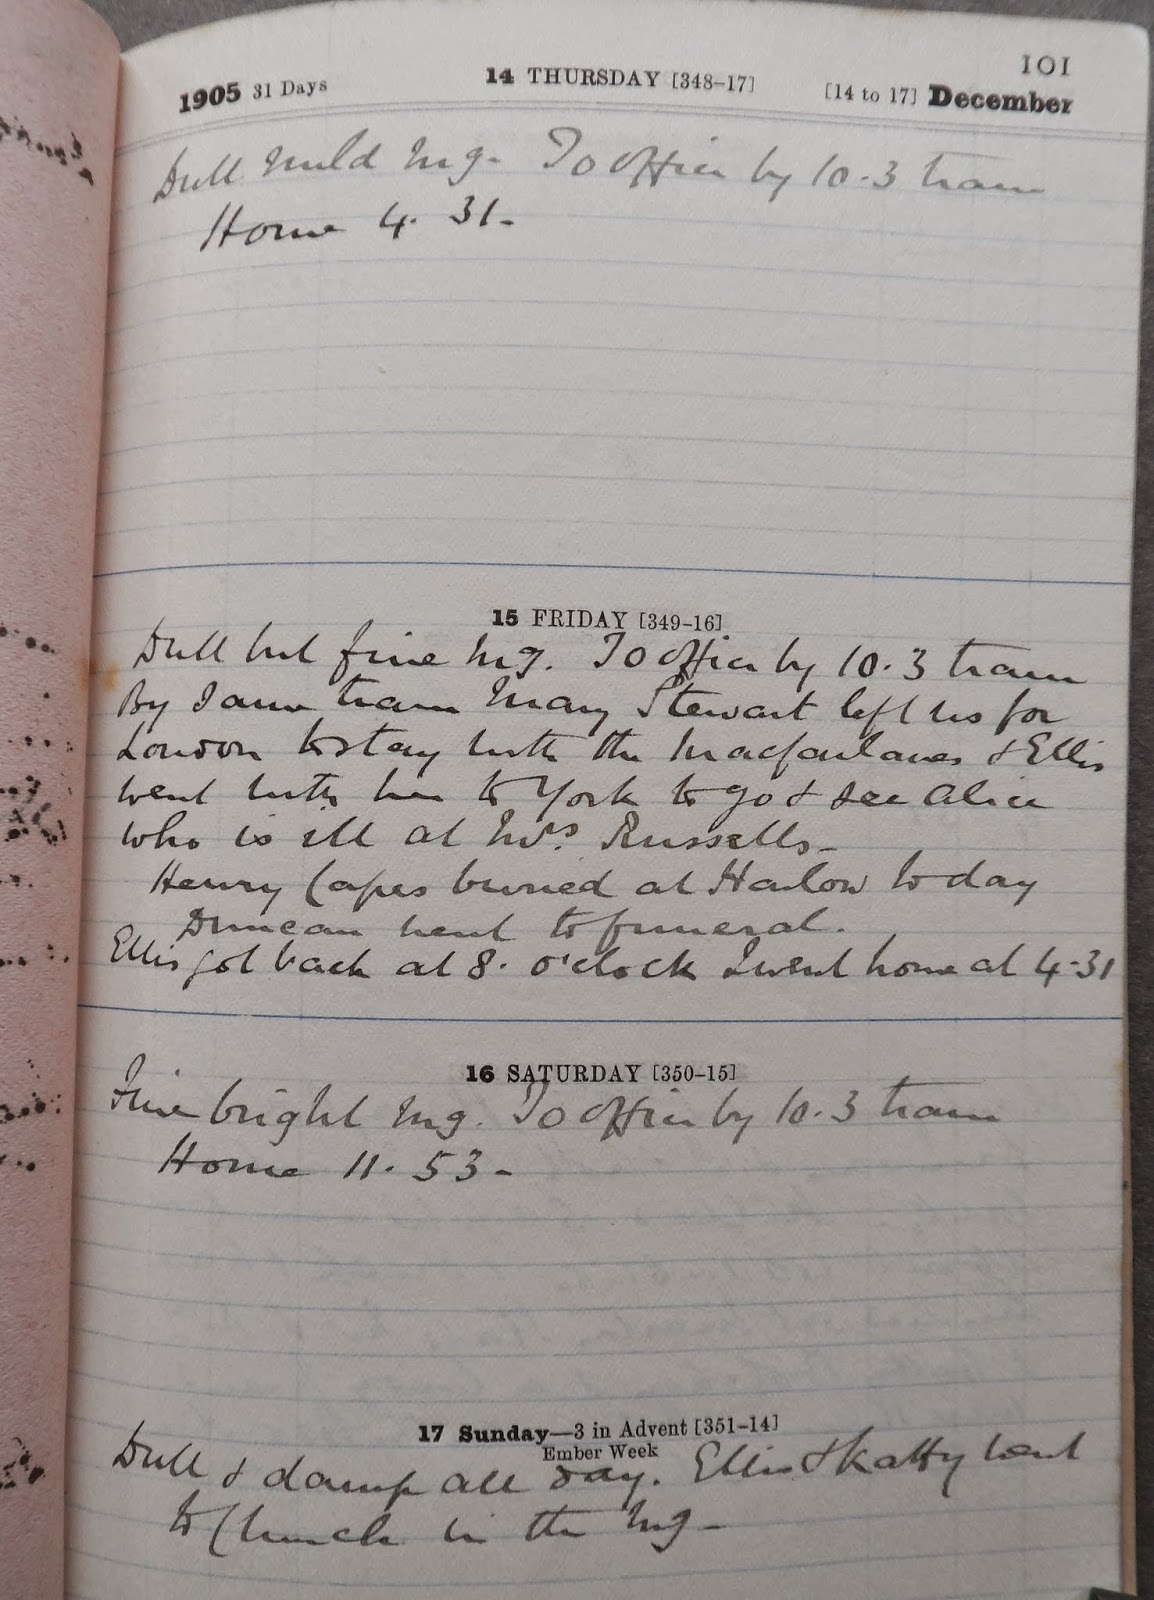 101
1905 31 Days 14 THURSDAY [348-17] [14 to 17] December
Dull mild mg. To office by 10.3 train
Home 4.31-
15 FRIDAY [349-16]
Dull but fine mg. To office by 10.3 train
By same train Mary Stewart left us for
London to stay with the Macfarlanes & Ellis
went with her to York to go & see Alice
who is ill at Mrs. Russells-
Henry Capes buried at Harlow to day
Duncan went to funeral.
Ellis got back at 8. o'clock I went home at 4-31
16 SATURDAY [350-15]
Fine bright mg. To office by 10.3 train
Home 11.53-
17 Sunday—3 in Advent [351-14]
Ember Week
Dull & damp all day. Ellis & Katty went
to Church in the mg-